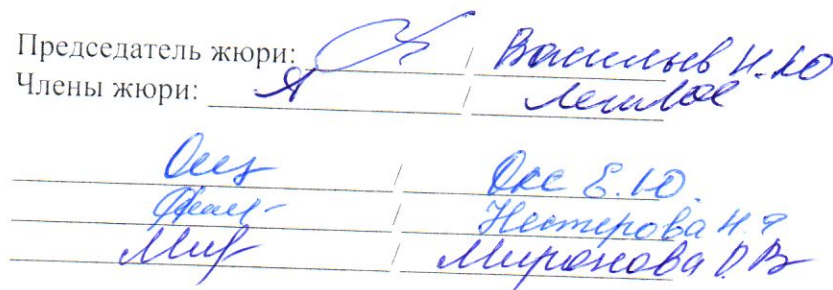 Председатель жюри: / Васильев Н.Ю
Члены жюри: /
/ Окс Е.Ю.
/ Нестерова Н.
/ Миронова О.В